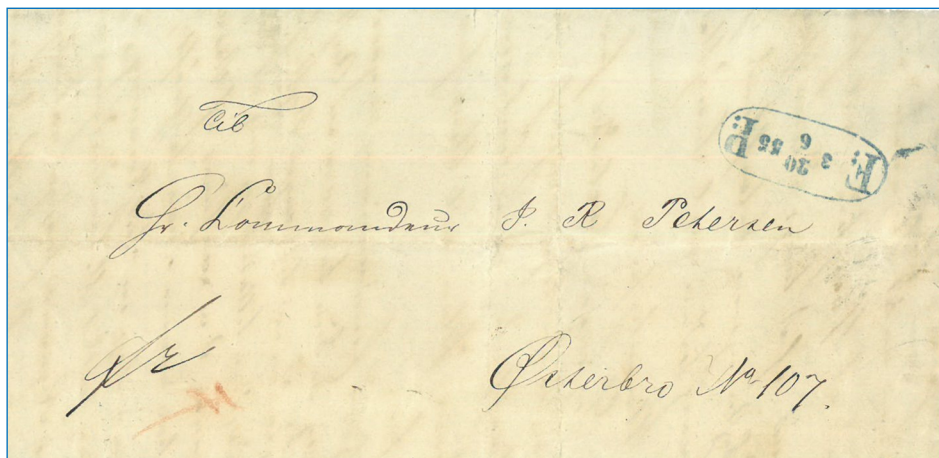 Til
F: P: D
3 20 55
6
Hr. Commandeur P. R Petersen
fr
Østerbro No 107.